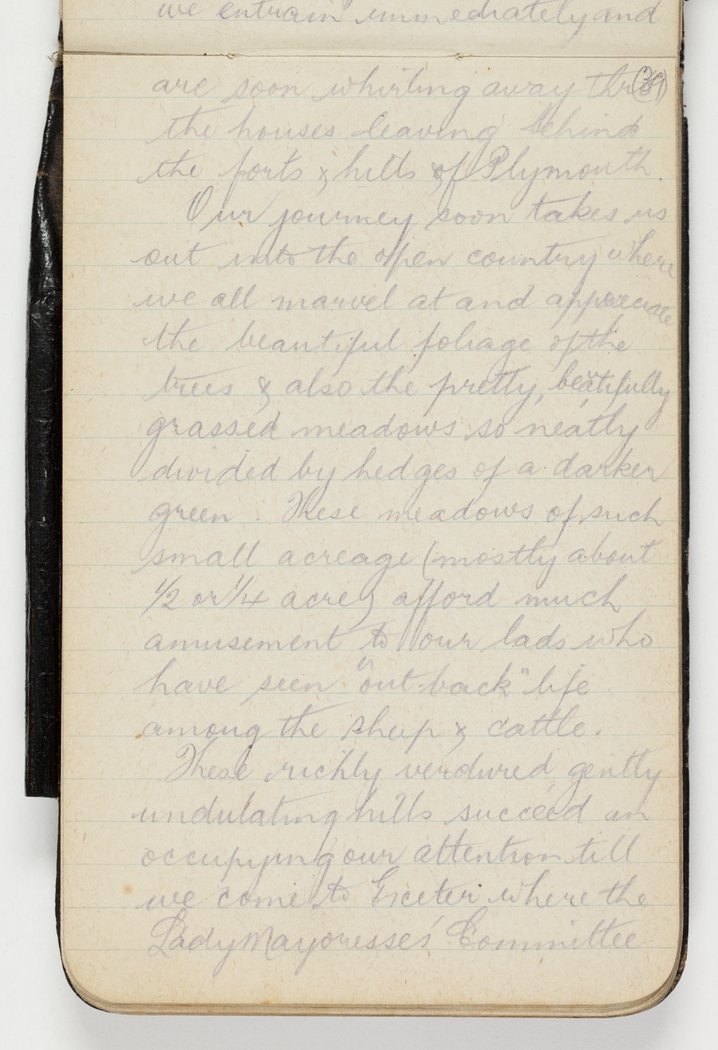 we entrain immediately and
are soon whirling away thro
the houses leaving behind
the forts & hills of Plymouth.
Our journey soon takes us
out into the open country where
we all marvel at and appreciate
the beautiful foliage of the
trees & also the pretty, beatifully
grassed meadows so neatly
divided by hedges of a darker
green. These meadows of such
small acreage (mostly about
1/2 or 1/4 acre) afford much
amusement to our lads who
have seen "out-back" life
among the sheep & cattle.
These richly verdured gently
undulating hills succeed in
occupying our attention till
we come to Exeter where the
Lady Mayoresses' Committee